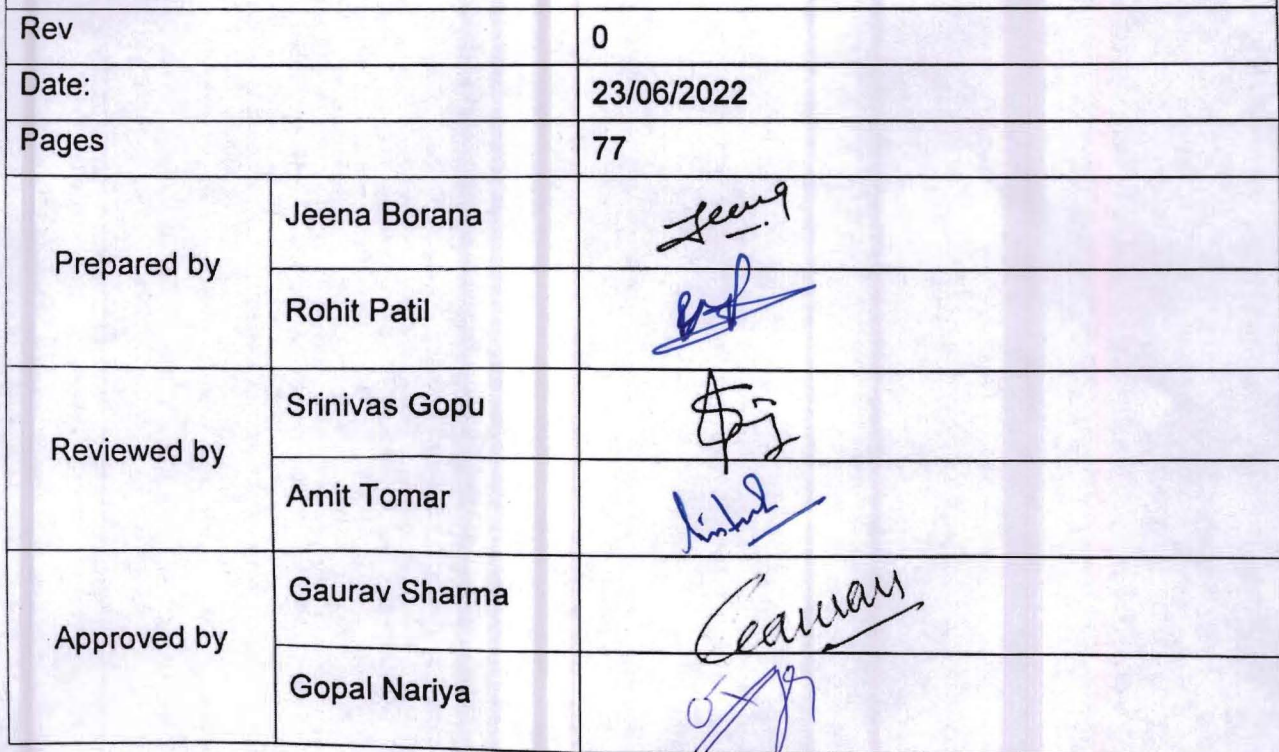 Rev 0
Date: 23/06/2022
Pages 77
Prepared by
Jeena Borana Jeena
Rohit Patil
Reviewed by
Srinivas Gopu
Amit Tomar
Approved by
Gaurav Sharma
Gopal Nariya